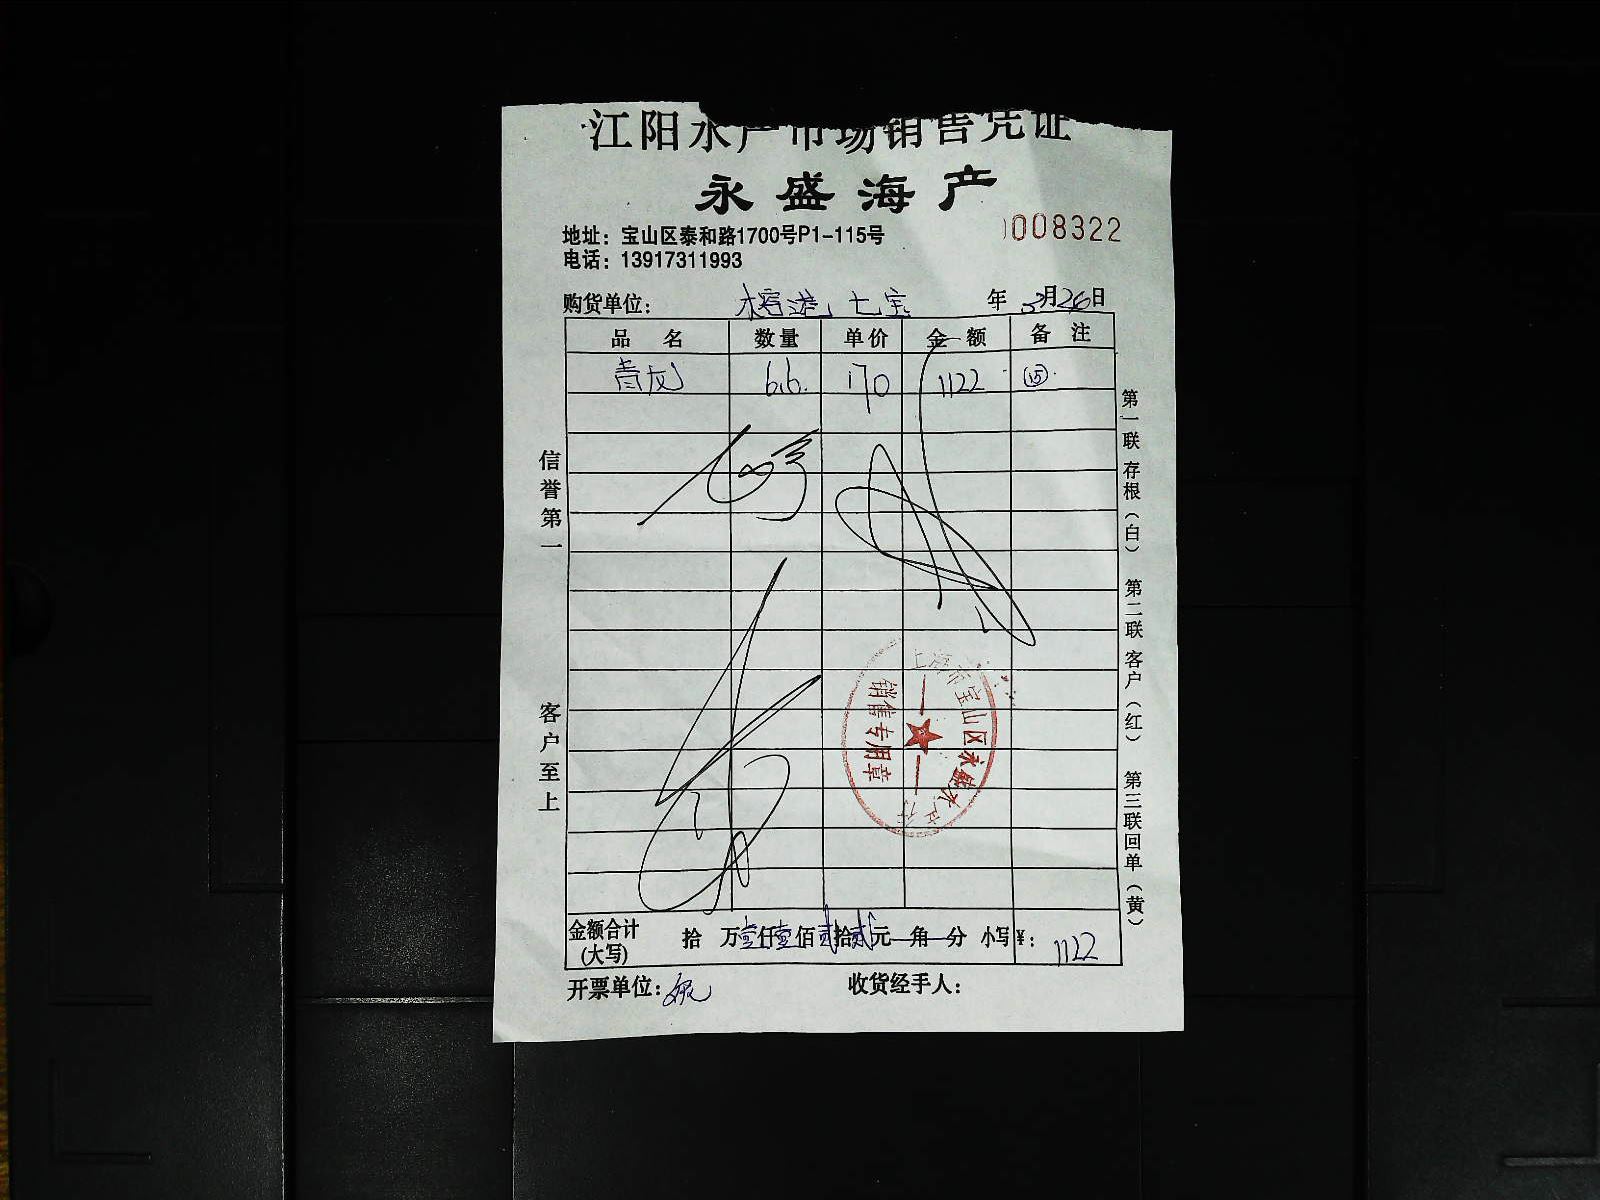 江阳水产市场销售凭证
永盛海产
0008322
地址：宝山区泰和路1700号P1-115号
电话：13917311993
购货单位： 榕港 七宝 年 3月26日
品名 数量 单价 金额 备注
青龙 6.6. 170 1122 (15).
信誉第一
客户至上
第一联 存根（白） 第二联 客户（红） 第三联回单（黄）
上海市宝山区永盛水产行
销售专用章
金额合计(大写) 拾 万壹仟壹佰贰拾贰元 角 分 小写¥： 1122
开票单位：
收货经手人：